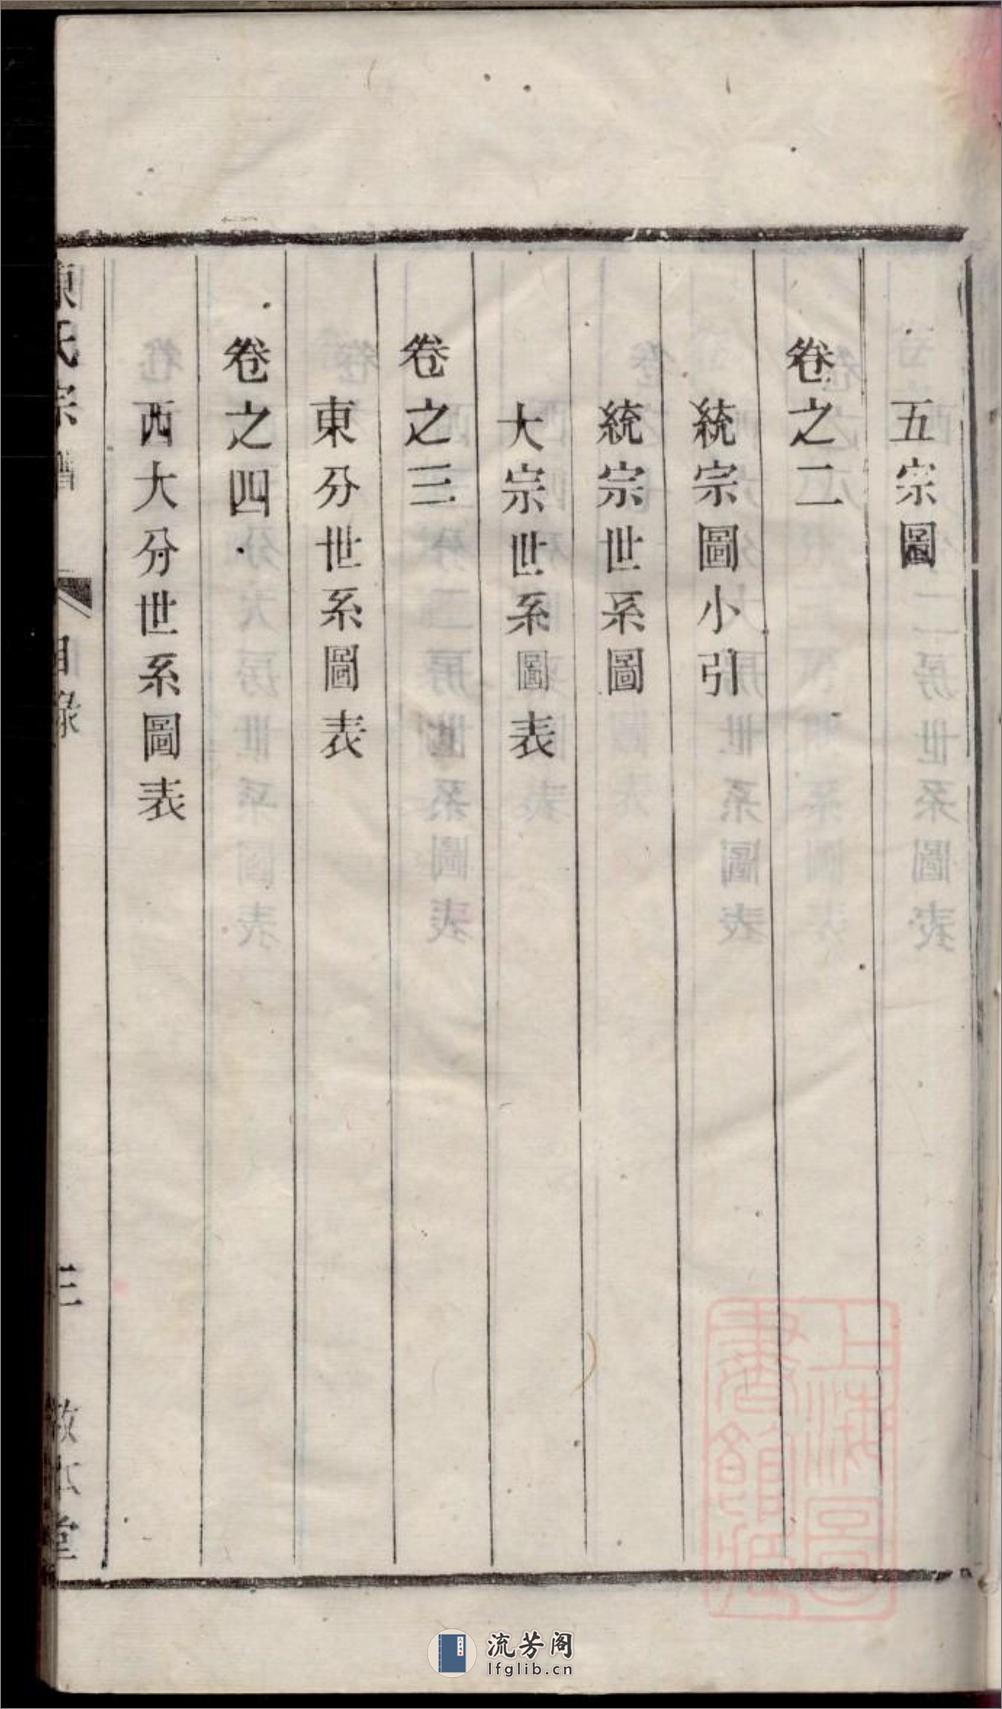 五宗圖
卷之二
統宗圖小引
統宗世系圖
大宗世系圖表
卷之三
東分世系圖表
卷之四
西大分世系圖表
陳氏宗譜
目錄
三
敦本堂
上海圖
書館藏
流芳阁
lfglib.cn